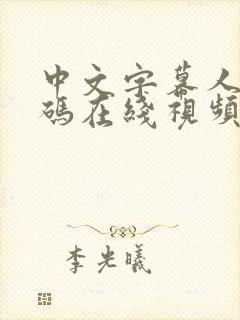 中文字幕人
碼在綫視頻
李光曦